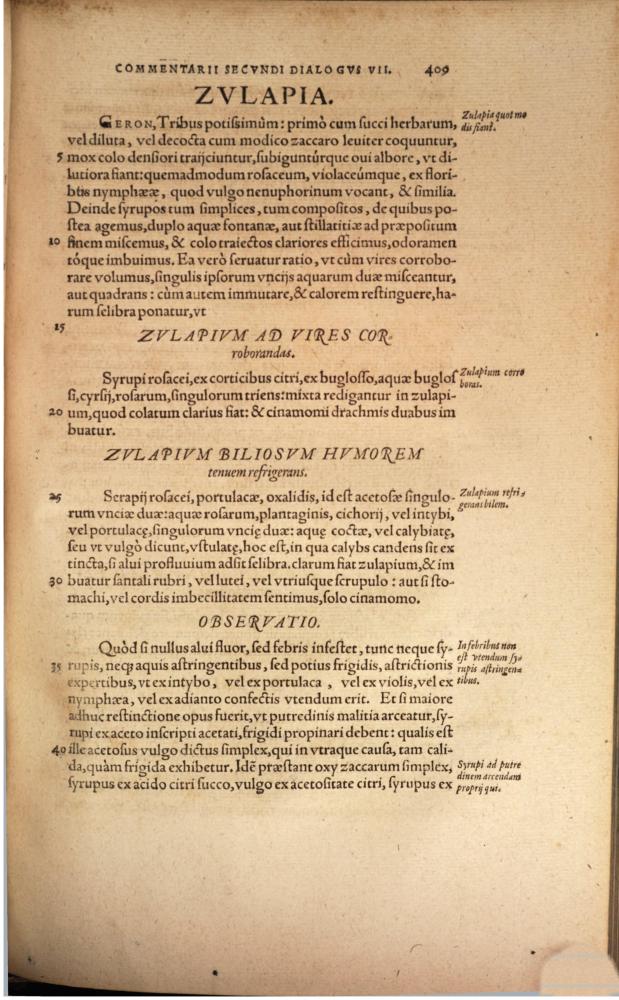 COMMENTARII SECVNDI DIALOGVS VII. 409
ZVLAPIA.
GERON, Tribus potissimùm: primò cum succi herbarum,
Zulapia quot mo
dis fiant.
vel diluta, vel decocta cum modico zaccaro leuiter coquuntur,
5 mox colo densiori traijciuntur, subiguntúrque oui albore, vt di-
lutiora fiant: quemadmodum rosaceum, violaceúmque, ex flori-
bus nymphææ, quod vulgo nenuphorinum vocant, & similia.
Deinde syrupos tum simplices, tum compositos, de quibus po-
stea agemus, duplo aquæ fontanæ, aut stillatitiæ ad præpositum
10 finem miscemus, & colo traiectos clariores efficimus, odoramen
tóque imbuimus. Ea verò seruatur ratio, vt cùm vires corrobo-
rare volumus, singulis ipsorum vncijs aquarum duæ misceantur,
aut quadrans: cùm autem immutare, & calorem restinguere, ha-
rum selibra ponatur, vt
15
ZVLAPIVM AD VIRES COR-
roborandas.
Syrupi rosacei, ex corticibus citri, ex buglosso, aquæ buglos
Zulapium corro
borans.
si, cyrsij, rosarum, singulorum triens: mixta redigantur in zulapi-
20 um, quod colatum clarius fiat: & cinamomi drachmis duabus im
buatur.
ZVLAPIVM BILIOSVM HVMOREM
tenuem refrigerans.
25 Serapij rosacei, portulacæ, oxalidis, id est acetosæ singulo-
Zulapium refri-
gerans bilem.
rum vnciæ duæ: aquæ rosarum, plantaginis, cichorij, vel intybi,
vel portulacę, singulorum vncię duæ: aquę coctæ, vel calybiatę,
seu vt vulgò dicunt, vstulatę, hoc est, in qua calybs candens sit ex
tincta, si alui profluuium adsit selibra. clarum fiat zulapium, & im
30 buatur santali rubri, vel lutei, vel vtriusque scrupulo: aut si sto-
machi, vel cordis imbecillitatem sentimus, solo cinamomo.
OBSERVATIO.
Quòd si nullus alui fluor, sed febris infestet, tunc neque sy-
In febribus non
est vtendum sy-
rupis astringen-
tibus.
35 rupis, neq; aquis astringentibus, sed potius frigidis, astrictionis
expertibus, vt ex intybo, vel ex portulaca, vel ex violis, vel ex
nymphæa, vel ex adianto confectis vtendum erit. Et si maiore
adhuc restinctione opus fuerit, vt putredinis malitia arceatur, sy-
rupi ex aceto inscripti acetati, frigidi propinari debent: qualis est
40 ille acetosus vulgo dictus simplex, qui in vtraque causa, tam cali-
da, quàm frigida exhibetur. Idē præstant oxyzaccarum simplex,
Syrupi ad putre
dinem arcendam
proprij qui.
syrupus ex acido citri succo, vulgo ex acetositate citri, syrupus ex